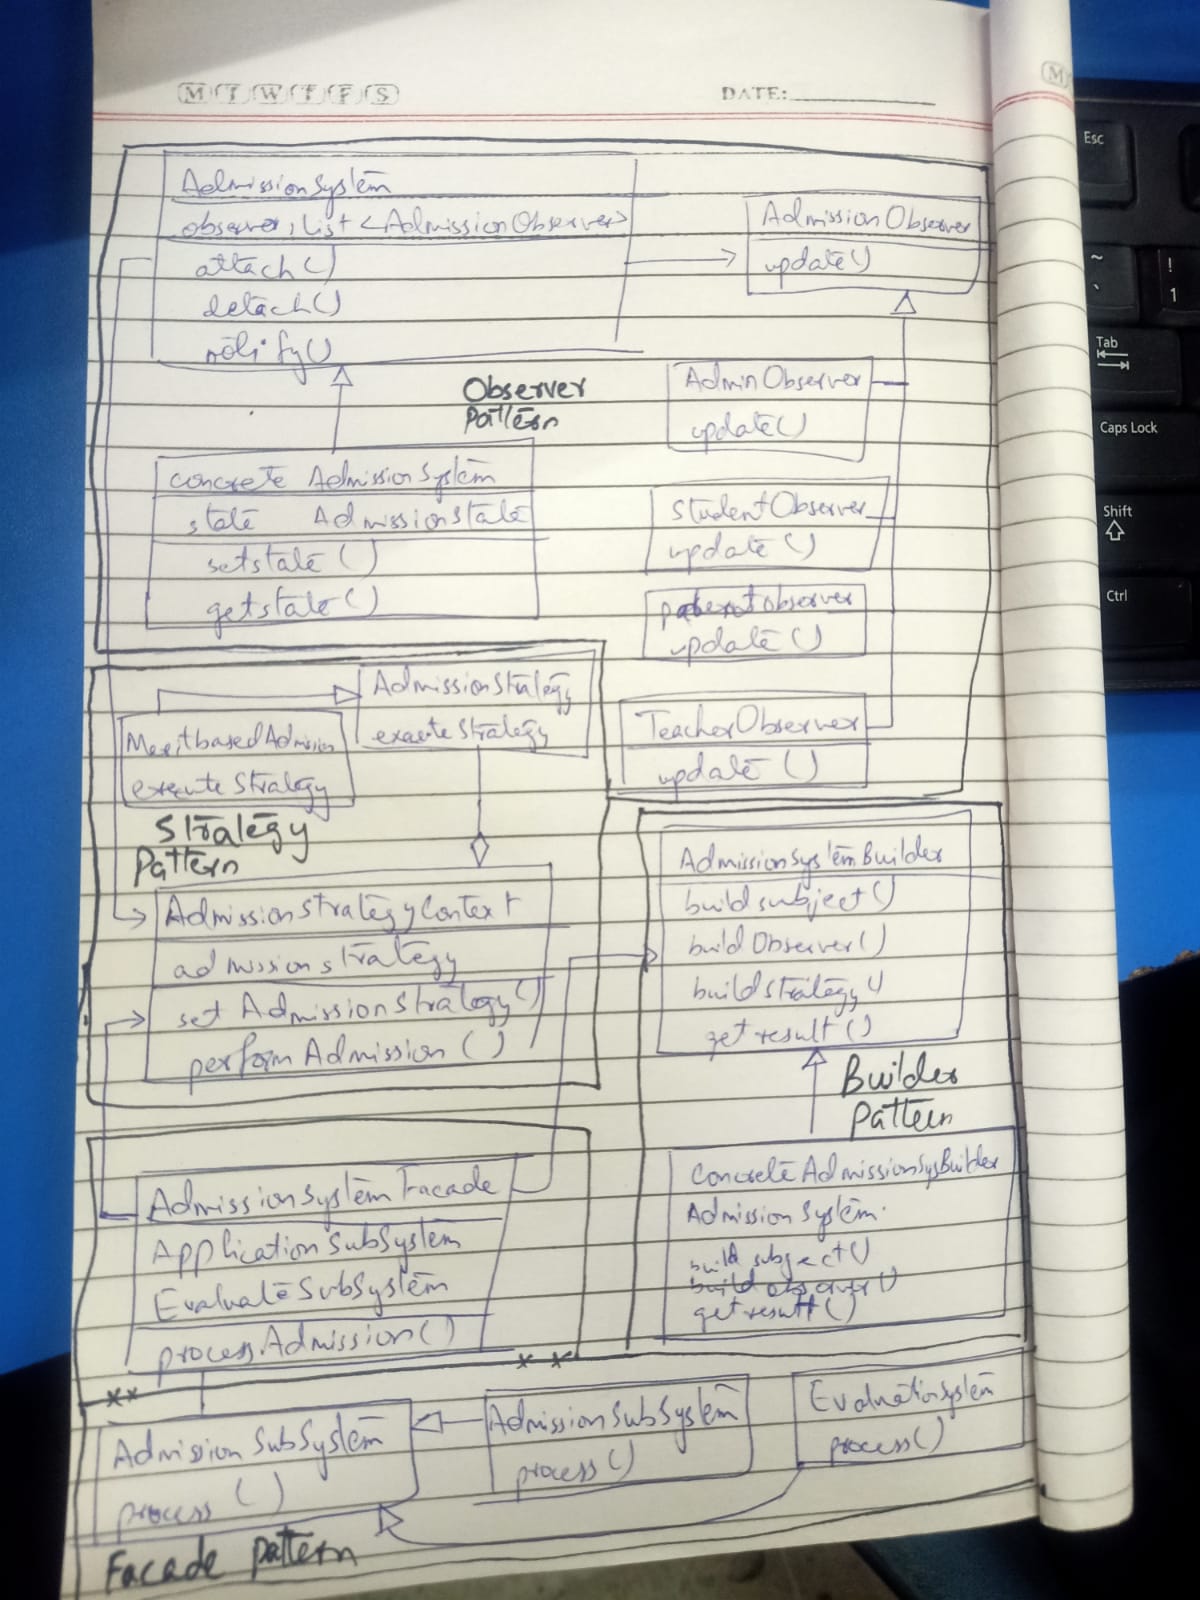 M T W T F S
DATE:
AdmissionSystem
observer, List <AdmissionObserver>
attach()
detach()
notify()
AdmissionObserver
update()
Observer
Pattern
AdminObserver
update()
concrete AdmissionSystem
state AdmissionState
setstate()
getstate()
StudentObserver
update()
observer
update()
TeacherObserver
update()
AdmissionStrategy
execute Strategy
MeritbasedAdmision
execute Strategy
Strategy
Pattern
AdmissionStrategyContext
admission strategy
set AdmissionStrategy()
perform Admission()
AdmissionSystemBuilder
buildsubject()
buildObserver()
buildstrategy()
getresult()
Builder
Pattern
ConcreteAdmissionSysBuilder
Admission System.
build subject()
build observer()
getresult()
AdmissionSystemFacade
ApplicationSubSystem
EvaluateSubSystem
process.Admission()
AdmissionSubSystem
process()
AdmissionSubSystem
process()
EvaluationSystem
process()
Facade Pattern
M
Esc
~
`
!
1
Tab
Caps Lock
Shift
Ctrl